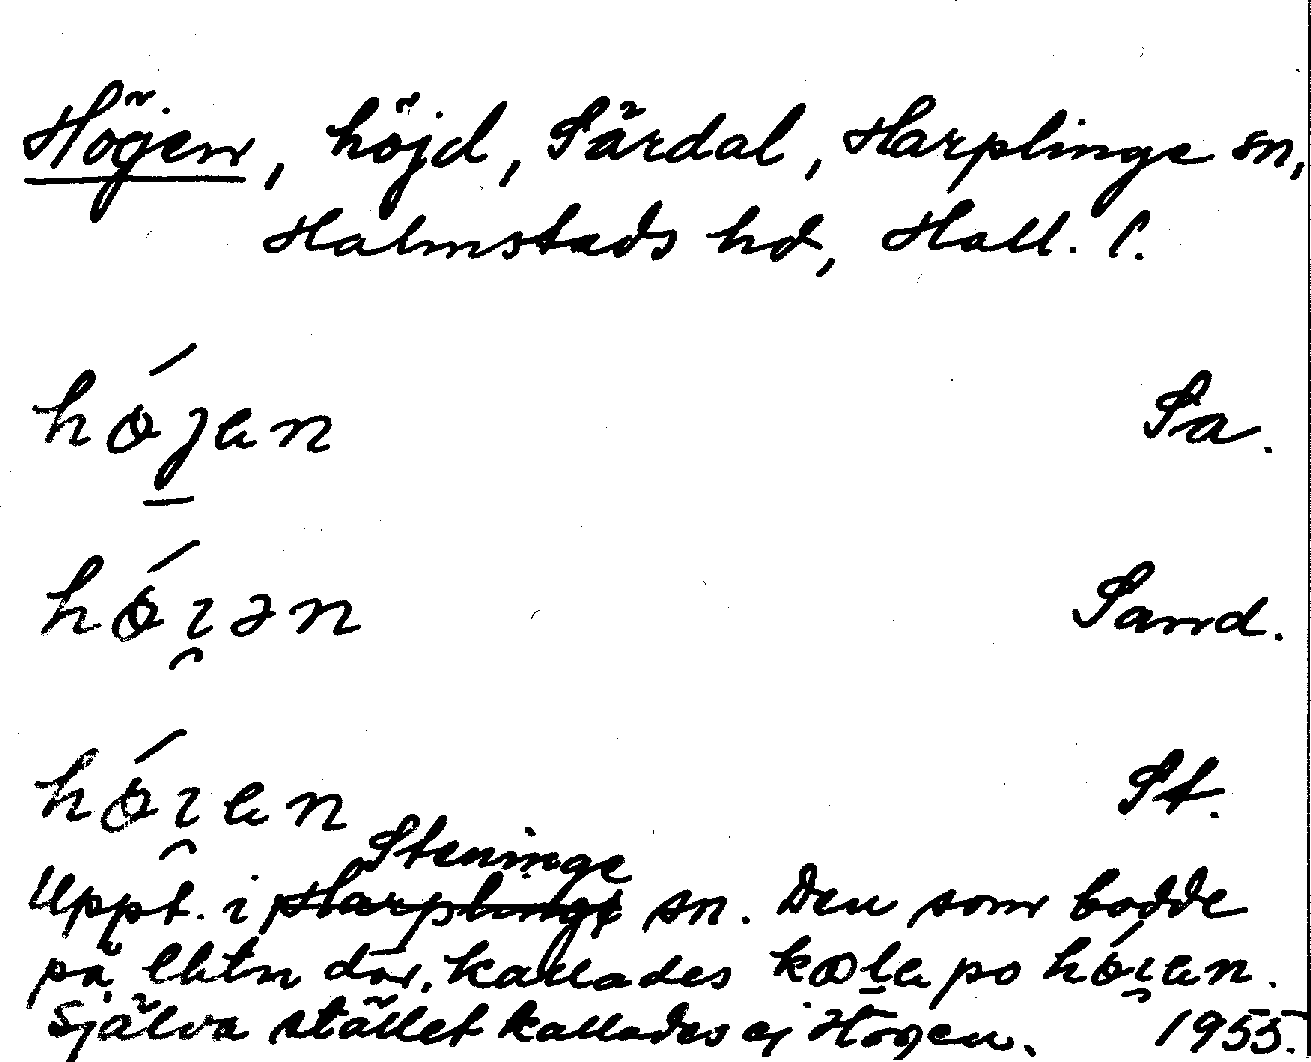 Högen, höjd, Särdal, Harplinge sn,
Halmstads hd, Hall. l.
hǿjen Sa.
hǿı̯ən Sand.
hǿı̯en St.
Steninge
Uppt. i Harplinge sn. Den som bodde
på lhtn där, kallades kalle po hǿı̯en.
Själva stället kallades ej Högen. 1955.